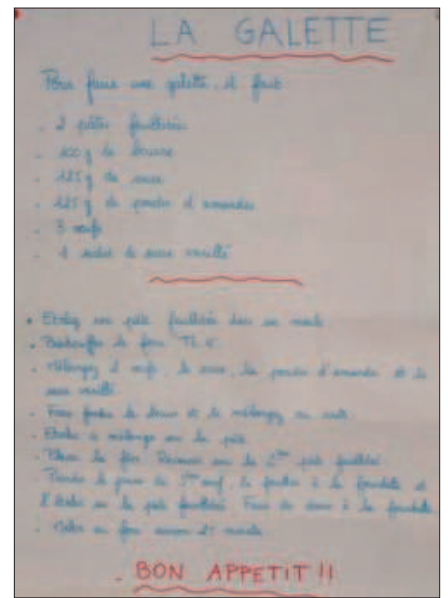 LA GALETTE
Pour faire une galette, il faut
- 2 pâtes feuilletées
- 100g de beurre
- 125g de sucre
- 125g de poudre d'amandes
- 3 œufs
- 1 sachet de sucre vanillé
- Etalez une pâte feuilletée dans un moule
- Préchauffer le four TH.
- Mélangez 2 œufs, le sucre, la poudre d'amande et le
sucre vanillé
- Faire fondre le beurre et le mélangez au
- Etaler le mélange sur la pâte
la 2ème pâte feuilletée
le jaune du 3ème œuf, à la fourchette et
l'étaler sur la pâte feuilletée. à la fourchette
- Mettre au four environ 25 minutes
- BON APPETIT !!